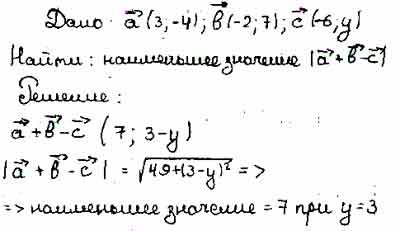 Дано: a⃗ (3;-4); b⃗ (-2;7); c⃗ (-6;y)
Найти: наименьшее значение |a⃗+b⃗-c⃗|
Решение:
a⃗+b⃗-c⃗ (7; 3-y)
|a⃗+b⃗-c⃗| = √49+(3-y)² =>
=> наименьшее значение = 7 при y=3